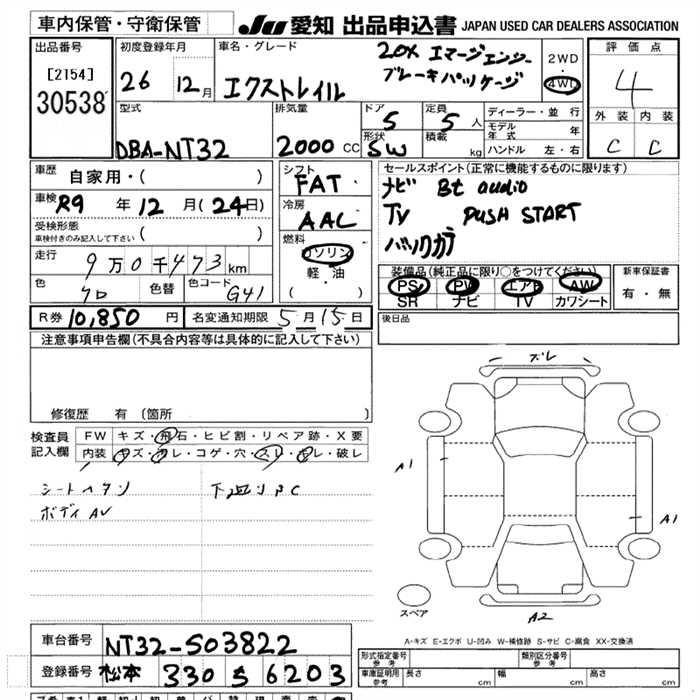 車内保管・守衛保管
JU 愛知 出品申込書 JAPAN USED CAR DEALERS ASSOCIATION
出品番号
[2154]
30538
初度登録年月
26 12月
車名・グレード
エクストレイル
20X エマージェンシー
ブレーキパッケージ
2WD
・
4WD
評価点
4
外装 内装
C C
型式
DBA-NT32
排気量
2000 CC
ドア
5
形状
SW
定員
5人
積載
kg
ディーラー・並行
モデル年式 年
ハンドル 左・右
車歴
自家用・( )
車検 R9 年 12 月 (24日)
受検形態
車検付きのみ記入して下さい ( )
走行
9万0千473km
色 色替 色コード
クロ G41
シフト
FAT
冷房
AAC
燃料
ガソリン
軽・油
( ・ )
セールスポイント(正常に機能するものに限ります)
ナビ Bt audio
TV PUSH START
バックカメラ
装備品(純正品に限り○をつけてください)
PS PW エアB AW
SR ナビ TV カワシート
新車保証書
有・無
R券 10,850 円
名変通知期限 5月15日
後日品
注意事項申告欄(不具合内容等は具体的に記入して下さい)
修復歴 有 (箇所 )
検査員
記入欄
FW キズ・飛石・ヒビ割・リペア跡・X要
内装 キズ・ヨゴレ・コゲ・穴・スレ・キレ・破レ
シートヘタリ 下廻りPC
ボディAU
ズレ
A1
A1
A2
スペア
A-キズ E-エクボ U-凹み W-補修跡 S-サビ C-腐食 XX-交換済
車台番号 NT32-503822
登録番号 松本 330 S 6203
形式指定番号
参考
類別区分番号
参考
車庫証明用
参考
長さ cm 幅 cm 高さ cm